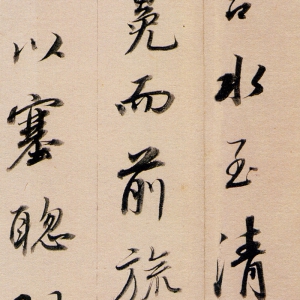 水至清
冕而前旒
以塞聰